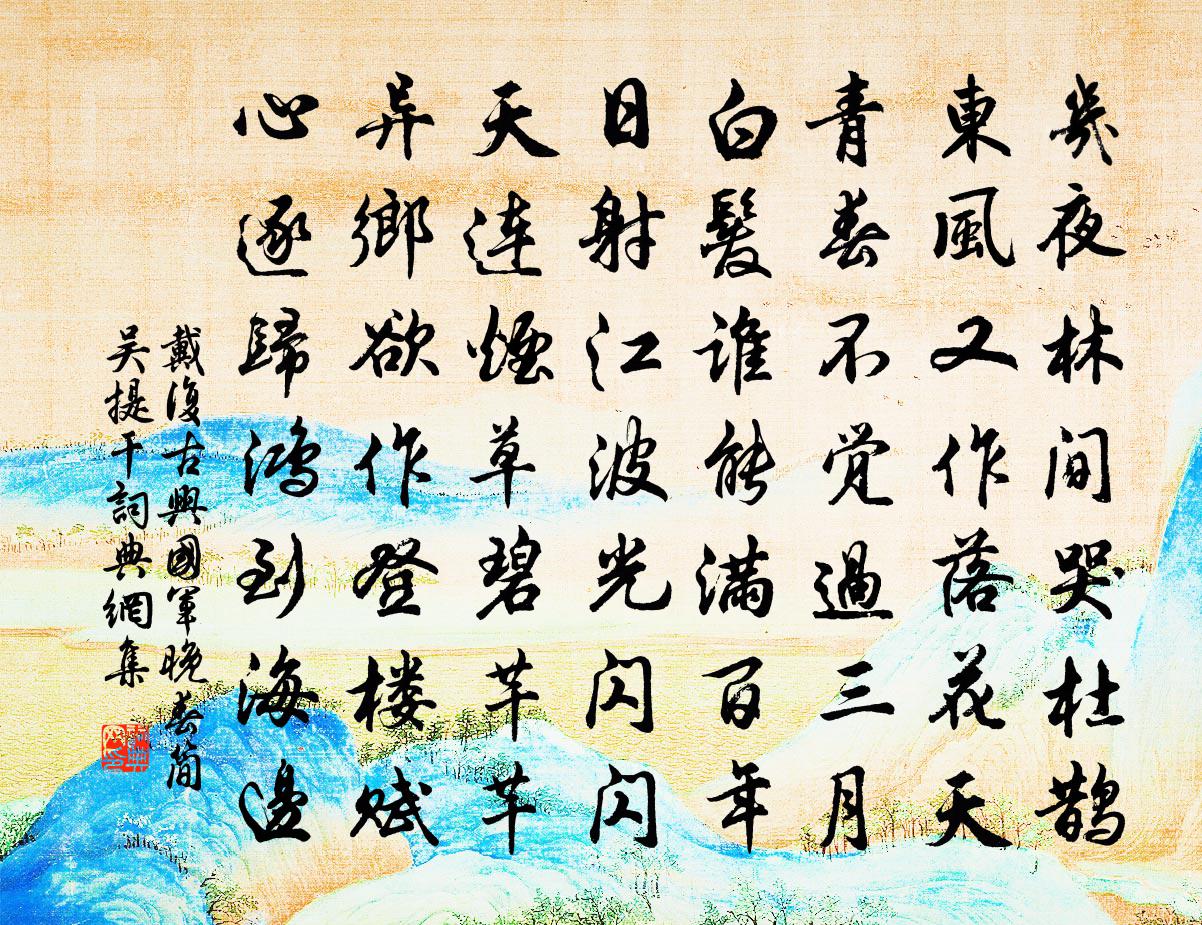 幾夜林間哭杜鹊
東風又作落花天
青春不觉過三月
白髮誰能滿百年
日射江波光闪闪
天連煙草碧芊芊
异鄉欲作登楼赋
心逐歸鴻到海邊
戴復古興國軍晚春簡
吴提干詞典網集